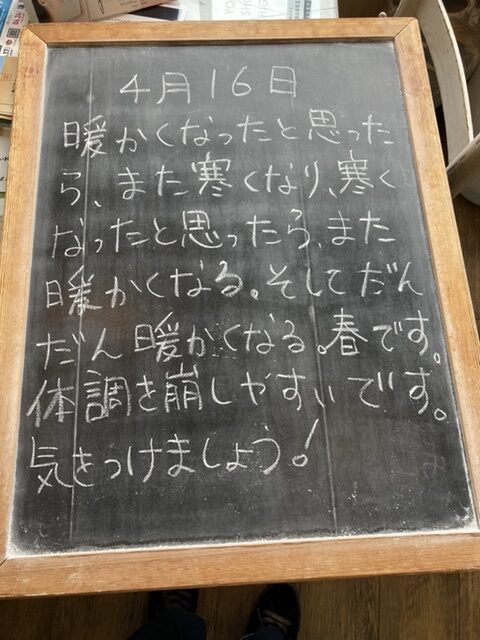 4月16日
暖かくなったと思った
ら、また寒くなり、寒く
なったと思ったら、また
暖かくなる。そしてだん
だん暖かくなる。春です。
体調を崩しやすいです。
気をつけましょう!